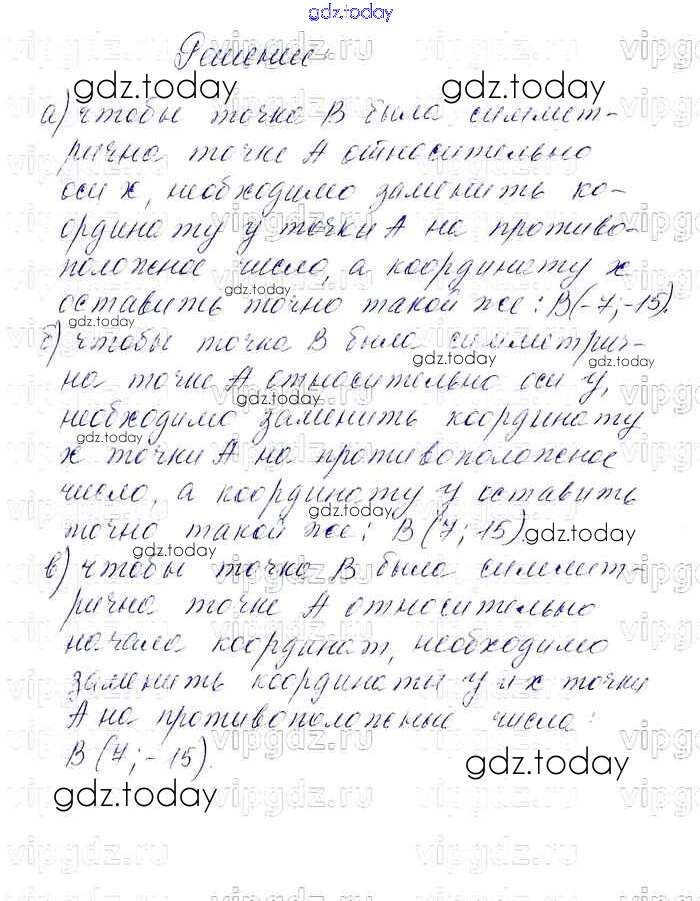 gdz.today
Решение:
gdz.today gdz.today
а) чтобы точка В была симмет-
рична точке А относительно
оси х, необходимо заменить ко-
ординату у точки А на противо-
положное число, а координату х
gdz.today
оставить точно такой же: В(-7;-15).
gdz.today
б) чтобы точка В была симметрич-
gdz.today
на точке А относительно оси у,
gdz.today
необходимо заменить координату
gdz.today
х точки А на противоположное
число, а координату у оставить
точно такой же: В(7; 15).
gdz.today
gdz.today
в) чтобы точка В была симмет-
рична точке А относительно
начала координат, необходимо
заменить координаты у и х точки
А на противоположные числа:
В(7; -15).
gdz.today
gdz.today
vipgdz.ru